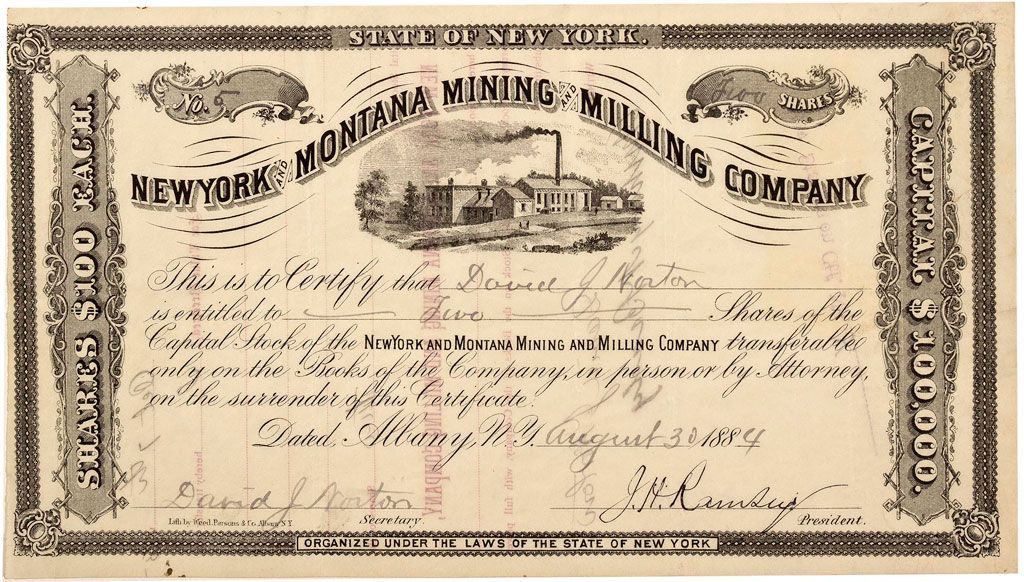 STATE OF NEW YORK.
No. 5
Two SHARES
NEW YORK AND MONTANA MINING AND MILLING COMPANY
SHARES $100 EACH.
CAPITAL $100,000.
This is to Certify that David J Norton
is entitled to Two Shares of the
Capital Stock of the NEW YORK AND MONTANA MINING AND MILLING COMPANY transferable
only on the Books of the Company, in person or by Attorney,
on the surrender of this Certificate.
Dated, Albany, N.Y. August 30 1884
David J Norton
J. H. Ramsey
Lith by Weed, Parsons & Co. Albany N.Y.
Secretary.
President.
ORGANIZED UNDER THE LAWS OF THE STATE OF NEW YORK